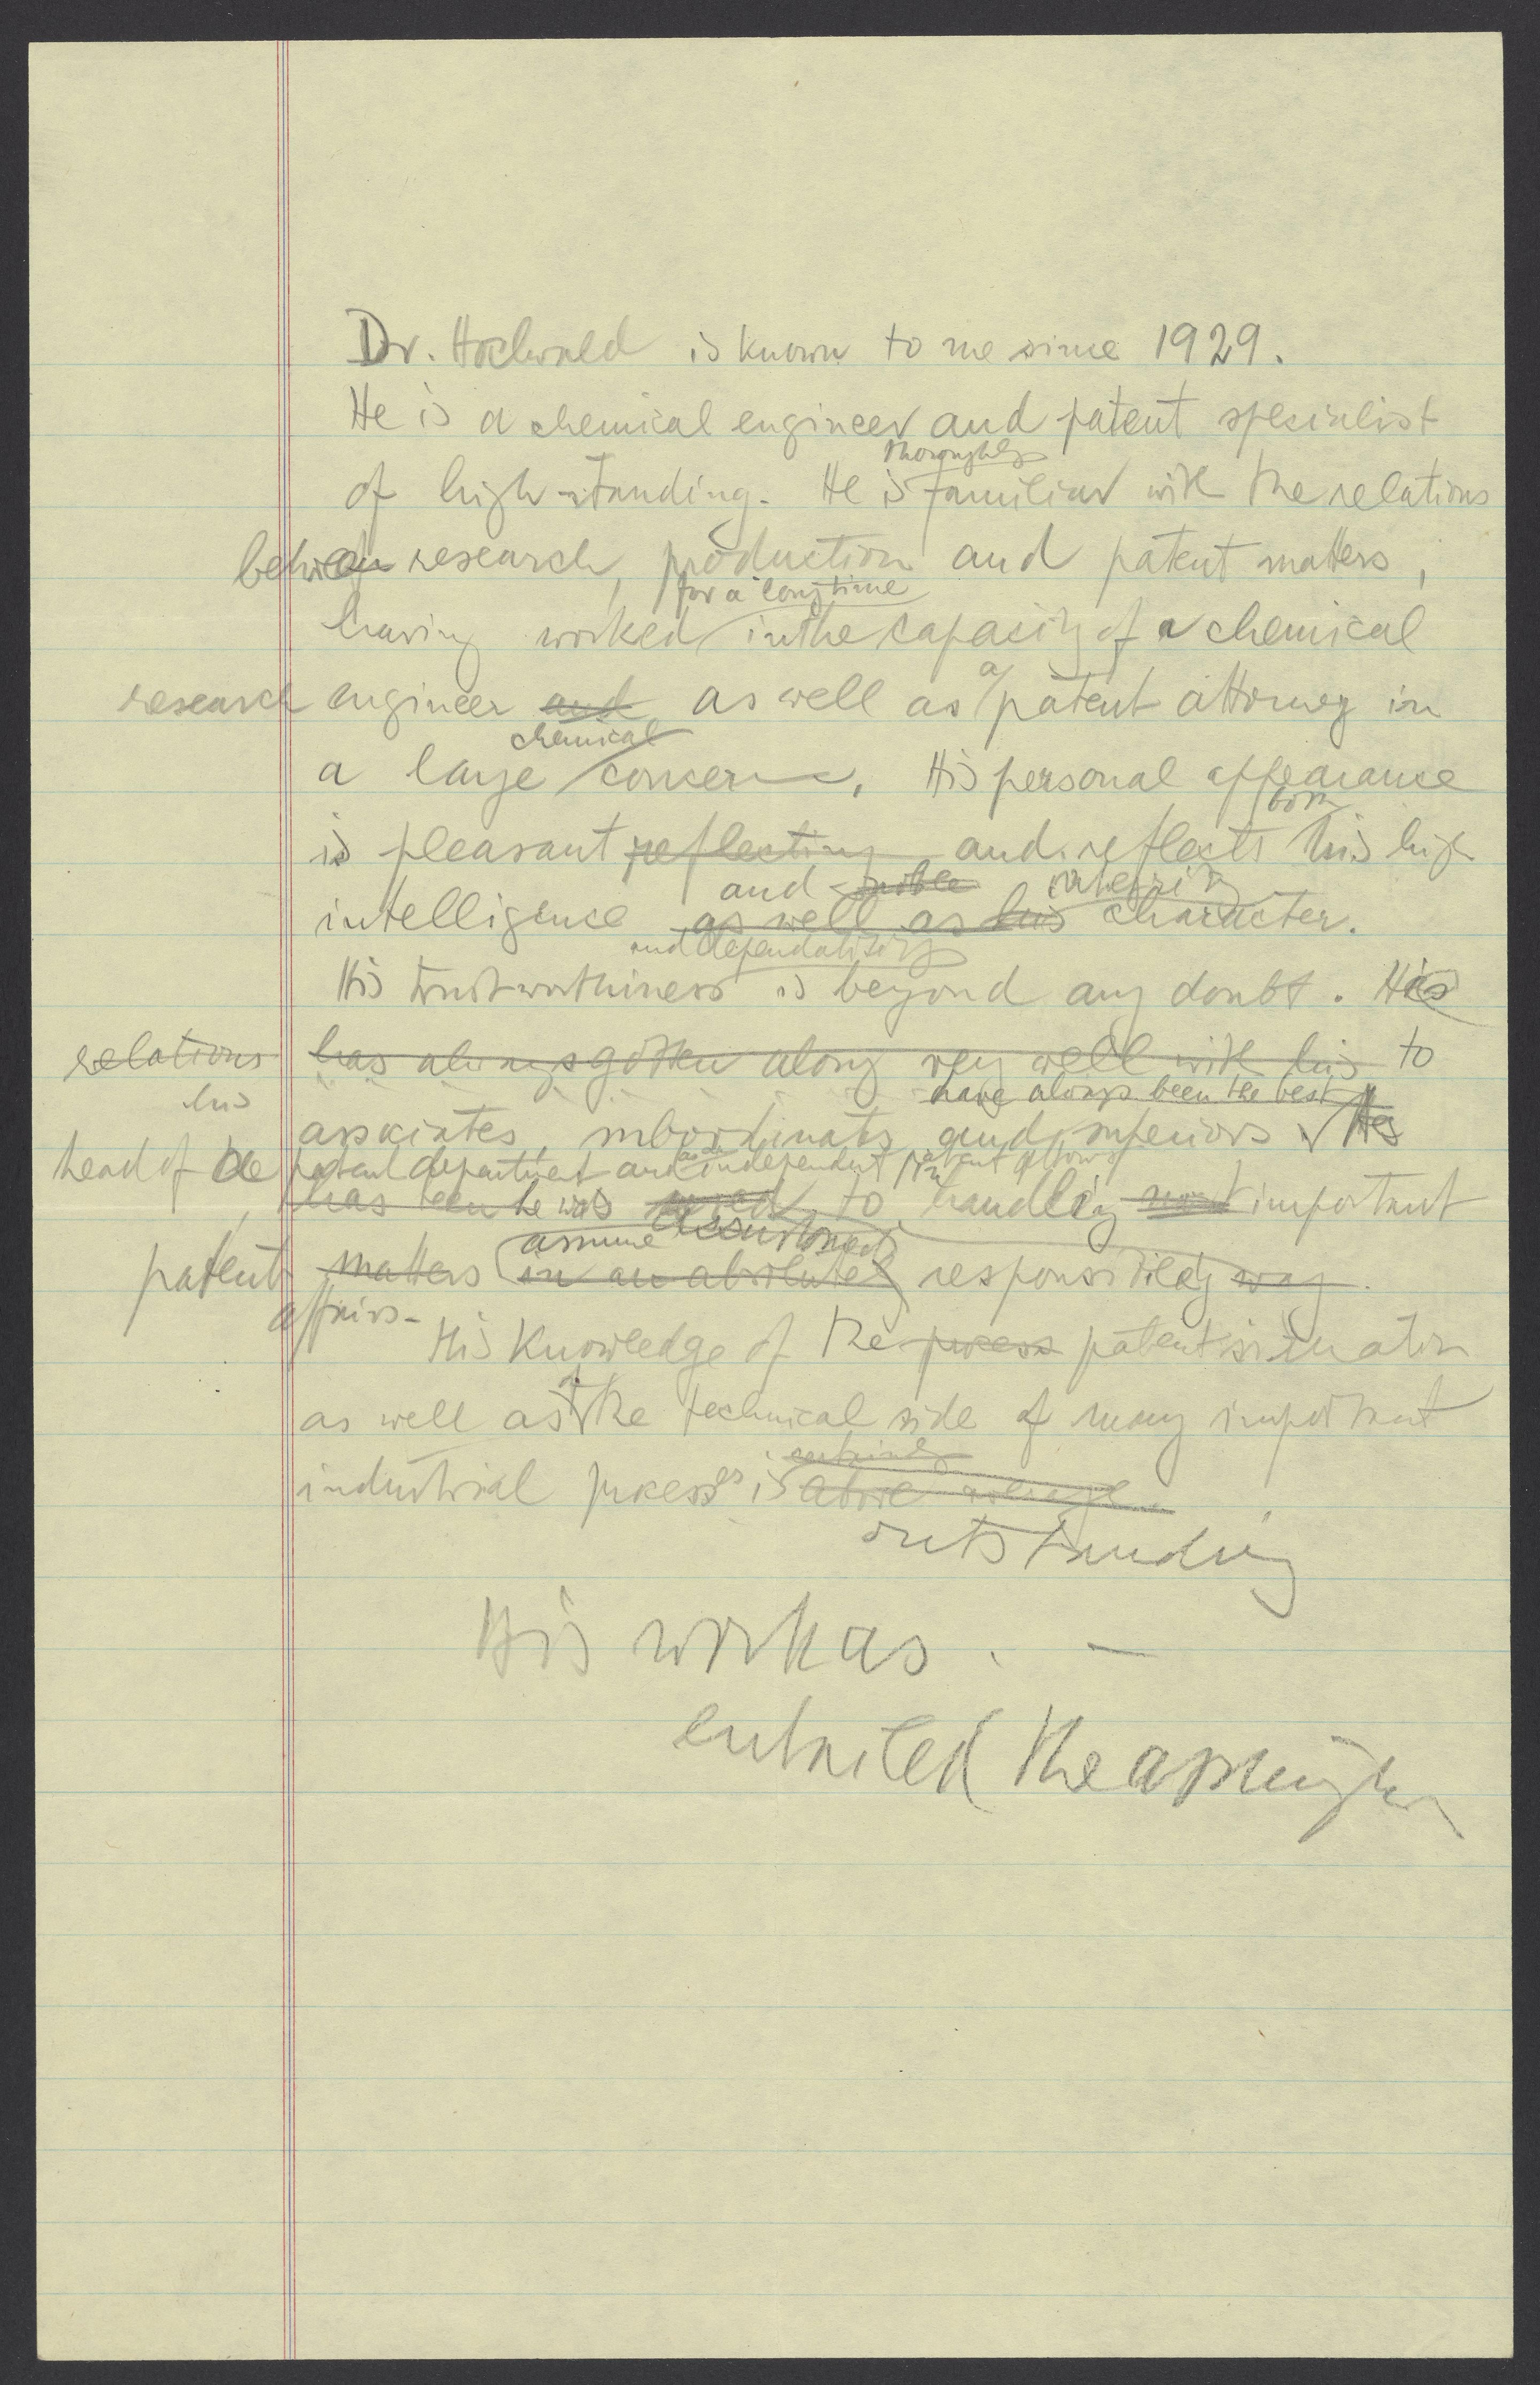 Dr. Hochwald is known to me since 1929.
He is a chemical engineer and patent specialist
thoroughly
of high standing. He is familiar with the relations
between research, production and patent matters,
for a long time
having worked in the capacity of a chemical
a
research engineer and as well as patent attorney in
chemical
a large concern. His personal appearance
both
is pleasant reflecting and reflects his high
and noble
intelligence as well as his character.
and dependability
His trustworthiness is beyond any doubt. His
relations has always gotten along very well with his to
his have always been the best
associates, subordinates and superiors. His
head of the patent department and as an independent patent attorney
has been he was used to handling most important
assume accustomed
patent matters in an absolutely responsibility way.
affairs.
His Knowledge of the process patent situation
of
as well as the technical side of many important
industrial processes is above average.
outstanding
His work as . —
entailed the